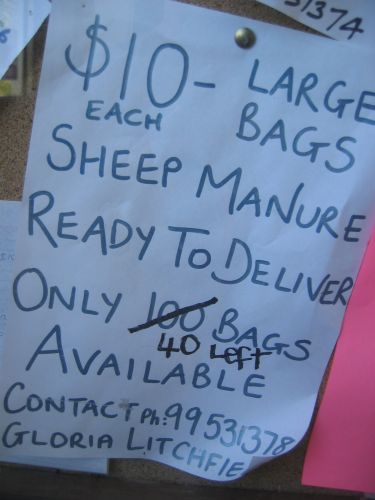 31374
$10- LARGE
EACH BAGS
SHEEP MANURE
READY TO DELIVER
ONLY 100 BAGS
40 Left
AVAILABLE
CONTACT Ph: 99531378
GLORIA LITCHFIE